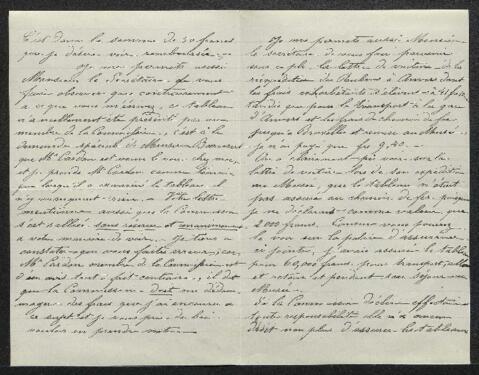 C'est donc la somme de 30 francs
que je désire voir remboursée.
Je me permets aussi
Monsieur le Secrétaire, de vous
faire observer que contrairement
à ce que vous m'écrivez, ce tableau
n'a nullement été présenté par un
membre de la Commission, c'est à la
demande spéciale de Monsieur
que Mr Cardon est venu le voir chez moi,
et je prends Mr Cardon comme témoin
que lorsqu'il a examiné le tableau il
n'y manquait
mentionne aussi que la Commission
s'est ralliée sans réserve et unanimement
à votre manière de voir. Je tiens à
constater que vous faites erreur, car
Mr Cardon membre de la Commission est
d'un avis tout à fait contraire, il dit
que la Commission doit me dédom-
mager des frais que j'ai encourus à
ce sujet et je vous prie de bien
vouloir en prendre notice.
Je me permets aussi Monsieur
le Secrétaire de vous faire parvenir
sous ce pli la lettre de voiture de la
réexpédition du Rubens à Anvers dont
les frais exhorbitants s'élèvent à 41 frs
tandis que pour le transport à la gare
d'Anvers et les frais de chemin de fer
jusqu'à Bruxelles et remise au Musée
je n'ai payé que frs 9,40.
On a clairement pu voir sur la
lettre de voiture lors de son expédition
au Musée, que le tableau n'était
pas assuré au chemin de fer puisque
je ne déclarais comme valeur que
2000 francs. Comme vous pouvez
le voir sur la police d'assurance
ci jointe, j'avais assuré le tableau
pour 60,000 francs, pour transport, aller
et retour et pendant son séjour au
Musée.
Si la Commission décline effectivement
toute responsabilité elle n'a aucun
droit non plus d'assurer les tableaux